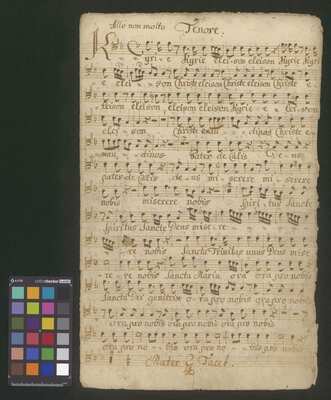 Allo non molto Tenore.
Kyrie Kyrie eleison eleison Kyrie Kyrie
e elei son Christe eleison Christe eleison Christe
eleison eleison eleison Kyrie eleison
eleison Christe audi dinos Christe e
xau dinos Pater de Celis De us
pater de Celis deus miserere miserere
nobis miserere nobis Spiritus Sancte
Spiritus Sancte Deus misere
re nobis Sancta Trinitas unus Deus misere
re re nobis Sancta Maria ora ora pro nobis
Sancta Dei genitrix ora pro nobis ora pro nobis
ora pro nobis ora pro nobis ora pro nobis
ora pro nobis ora pro nobis
Mater &c Tacet.